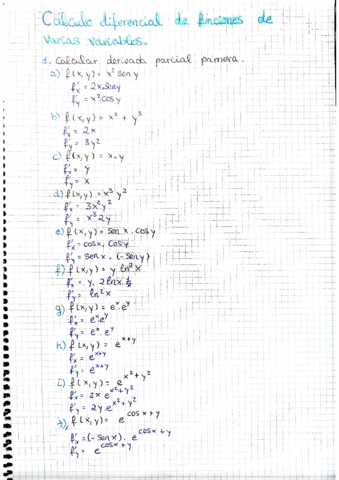 Cálculo diferencial de funciones de
varias variables.
1. Calcular derivada parcial primera.
a) f(x,y) = x² sen y
f'x = 2x.sen y
f'y = x².cos y
b) f(x,y) = x² + y³
f'x = 2x
f'y = 3y²
c) f(x,y) = x.y
f'x = y
f'y = x
d) f(x,y) = x³ y²
f'x = 3x² y²
f'y = x³ 2y
e) f(x,y) = sen x . cos y
f'x = cos x . cos y
f'y = sen x . (-sen y)
f) f(x,y) = y ln² x
f'x = y. 2 ln x. 1/x
f'y = ln² x
g) f(x,y) = eˣ.eʸ
f'x = eˣ.eʸ
f'y = eˣ. eʸ
h) f(x,y) = e^x+y
f'x = e^x+y
f'y = e^x+y
i) f(x,y) = e^x²+y²
f'x = 2x e^x²+y²
f'y = 2y.e^x²+y²
j) f(x,y) = e^cos x + y
f'x = (-sen x) . e^cos x + y
f'y = e^cos x + y